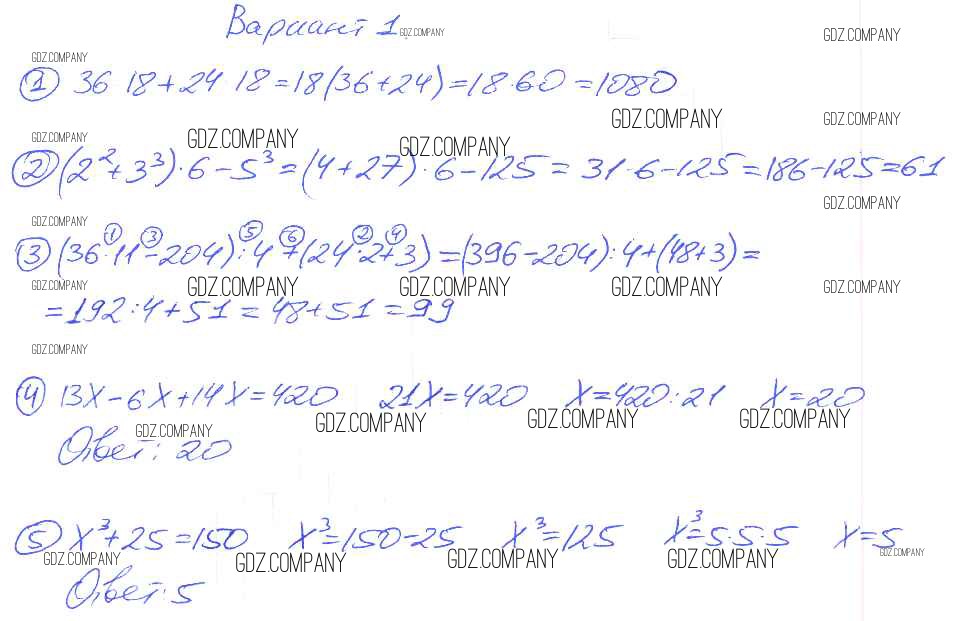 Вариант 1
GDZ.COMPANY
GDZ.COMPANY
GDZ.COMPANY
1 36 18 + 24 18 = 18(36+24) = 18·60 = 1080
GDZ.COMPANY
GDZ.COMPANY
GDZ.COMPANY GDZ.COMPANY GDZ.COMPANY
2 (2²+3³)·6-5³ = (4+27)·6-125 = 31·6-125 = 186-125 = 61
GDZ.COMPANY
GDZ.COMPANY
1 3 5 6 2 4
3 (36·11-204):4+(24·2+3) = (396-204):4+(48+3) =
GDZ.COMPANY GDZ.COMPANY GDZ.COMPANY GDZ.COMPANY GDZ.COMPANY
= 192:4+51 = 48+51 = 99
GDZ.COMPANY
4 13x-6x+14x=420 21x=420 x=420:21 x=20
GDZ.COMPANY GDZ.COMPANY GDZ.COMPANY GDZ.COMPANY
Ответ: 20
5 x³+25=150 x³=150-25 x³=125 x³=5·5·5 x=5
GDZ.COMPANY GDZ.COMPANY GDZ.COMPANY GDZ.COMPANY GDZ.COMPANY
Ответ: 5